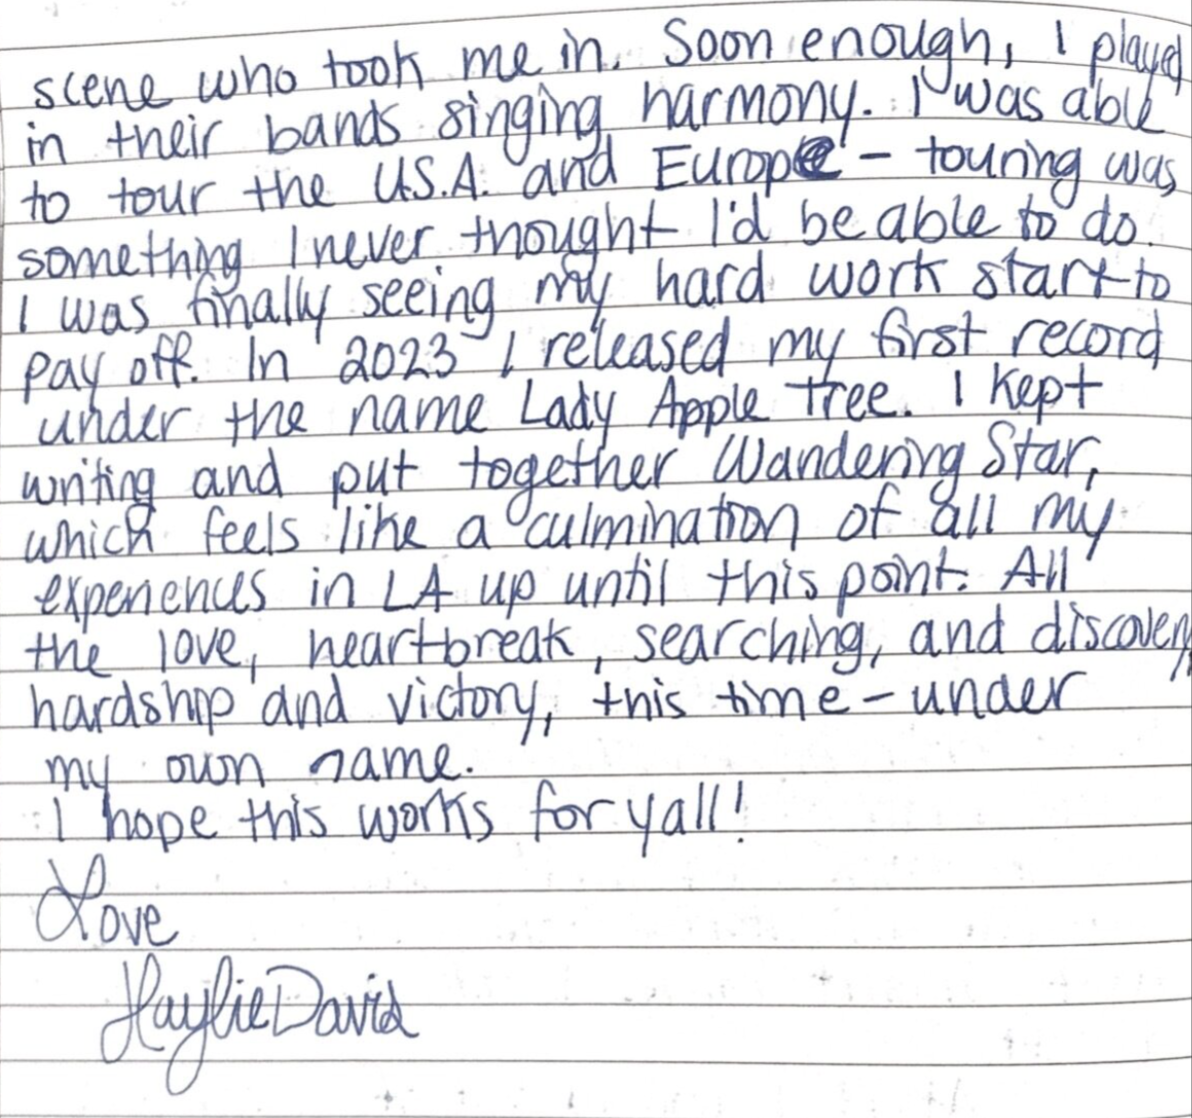 scene who took me in. Soon enough, I played
in their bands singing harmony. I was able
to tour the U.S.A. and Europe - touring was
something I never thought I'd be able to do.
I was finally seeing my hard work start to
pay off. In 2023 I released my first record
under the name Lady Apple Tree. I kept
writing and put together Wandering Star,
which feels like a culmination of all my
experiences in LA up until this point. All
the love, heartbreak, searching, and discovery,
hardship and victory, this time - under
my own name.
I hope this works for yall!
Love
Haylie Davis